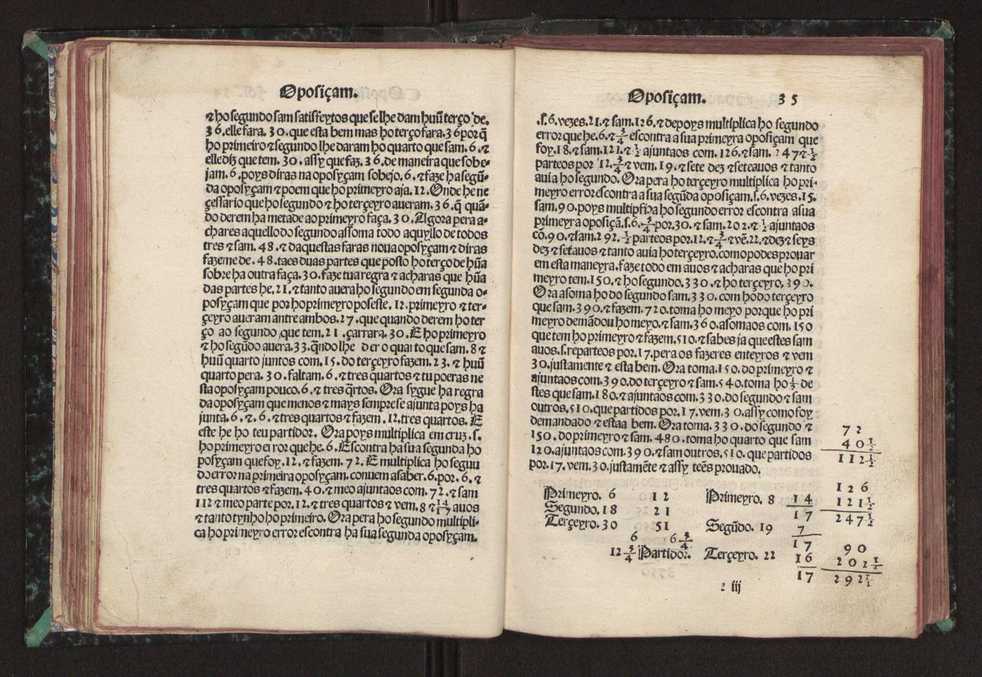 Oposiçam.
⁊ ho segundo sam satisfeytos que se lhe dam huũ terço de.
36. elle fara. 30. que esta bem mas ho terço fara. 36 por q̃
ho primeiro ⁊ segundo lhe daram ho quarto que sam. 6. ⁊
elle diz que tem. 30. assy que faz. 36. de maneira que sobe-
jam. 6. poys diras na oposyçam sobejo. 6. ⁊ faze ha segũ-
da oposyçam ⁊ poem que ho primeyro aja. 12. Onde he ne
çessario que ho segundo ⁊ ho terçeyro aueram. 36. q̃ quã-
do derem ha metade ao primeyro faça. 30. Agora pera a-
chares aquello do segundo assoma todo aquyllo de todos
tres ⁊ sam. 48. ⁊ da questas faras noua oposyçam ⁊ diras
fazeme de. 48. taes duas partes que posto ho terço de hũa
sobre ha outra faça. 30. faze tua regra ⁊ acharas que hũa
das partes he. 21. ⁊ tanto auera ho segundo em segunda o-
posyçam que por ho primeyro poseste. 12. primeyro ⁊ ter-
çeyro aueram antre ambos. 27. que quando derem ho ter
ço ao segundo que tem. 21. çarrara. 30. E ho primeyro
⁊ ho segũdo auera. 33. q̃ndo lhe der o quarto que sam. 8 ⁊
huũ quarto juntos com. 15. do terçeyro fazem. 23. ⁊ huũ
quarto pera. 30. faltam. 6. ⁊ tres quartos ⁊ tu poeras ne
sta oposyçam pouco. 6. ⁊ tres q̃rtos. Ora sygue ha regra
da oposyçam que menos ⁊ mays sempre se ajunta poys ha
junta. 6. ⁊. 6. ⁊ tres quartos ⁊ fazem. 12. tres quartos. E
este he ho teu partidor. Ora poys multiplica em cruz. s.
ho primeyro error que he. 6. Escontra ha sua segunda ho
posyçam que foy. 12. ⁊ fazem. 72. E multiplica ho seguu
do error na primeira oposyçam. conuem a saber. 6. por. 6. ⁊
tres quartos ⁊ fazem. 40. ⁊ meo ajuntaos com. 72. ⁊ sam
112 ⁊ meo parte por. 12. ⁊ tres quartos ⁊ vem. 8 ⁊ 14/17 auos
⁊ tanto tynho ho primeiro. Ora pera ho segundo multipli-
ca ho primeyro error escontra ha sua segunda oposyçam.
Oposiçam. 35
.s. 6. vezes. 21. ⁊ sam. 126. ⁊ depoys multiplica ho segundo
error que he. 6. ⁊ 3/4 escontra a sua primeyra oposiçam que
foy. 18. ⁊ sam. 121. ⁊ 1/2 ajuntaos com. 126. ⁊ sam. 247 ⁊ 1/2
parteos por 12. 3/4 ⁊ vem. 19. ⁊ sete dez ⁊ seteauos ⁊ tanto
auia ho segundo. Ora pera ho terçeyro multiplica ho pri-
meyro error escontra a sua segũda oposiçam. s. 6. vezes. 15.
sam. 90. poys multiprica ho segundo error escontra a sua
primeyra oposiçã. s. 6. 3/4 por. 30. ⁊ sam. 202. ⁊ 1/2 ajuntaos
cõ. 90. ⁊ sam. 292. 1/2 parteos por. 12. ⁊ 3/4 ⁊ vẽ. 22. ⁊ dez ⁊ seys
dez ⁊ setauos ⁊ tanto auia ho terçeyro. como podes prouar
em esta maneyra. faze todo em auos ⁊ acharas que ho pri
meyro tem. 150. ⁊ ho segundo. 330. ⁊ ho terçeyro. 390.
Ora asoma ho do segundo sam. 330. com ho do terçeyro
que sam. 390. ⁊ fazem. 720. toma ho meyo por que ho pri
meyro demãdou ho meyo. ⁊ sam. 360. asomaos com. 150
que tem ho primeyro ⁊ fazem. 510. ⁊ sabe ja que estes sam
auos. s. reparteos por. 17. pera os fazeres enteyros ⁊ vem
30. justamente ⁊ esta bem. Ora toma. 150. do primeyro ⁊
ajuntaos com. 390. do terçeyro ⁊ sam. 540. toma ho 1/3 de
stes que sam. 180. ⁊ ajuntaos com. 330. do segundo ⁊ sam
outros. 510. que partidos por. 17. vem. 30. assy como foy
demandado ⁊ estaa bem. Ora toma. 330. do segundo ⁊
150. do primeyro ⁊ sam. 480. toma ho quarto que sam
120. ajuntaos com. 390. ⁊ sam outros. 510. que partidos
por. 17. vem. 30. justamẽte ⁊ assy teẽs prouado.
72
40 1/2
112 1/2
Primeyro. 6 12
Segundo. 18 21
Terçeyro. 30 51
6 6 3/4
12 3/4 Partidor.
Primeyro. 8 14/17
Segũdo. 19 7/17
Terçeyro. 22 16/17
126
121 1/2
247 1/2
90
202 1/2
292 1/2
2 iij